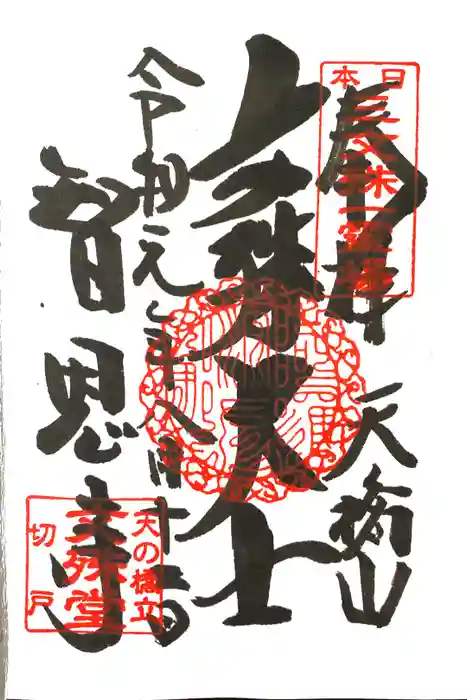 奉拝
天橋山
日本
三文殊一霊場
文殊大士
令和元年八月十
智恩寺
天の橋立
文殊堂
切戸